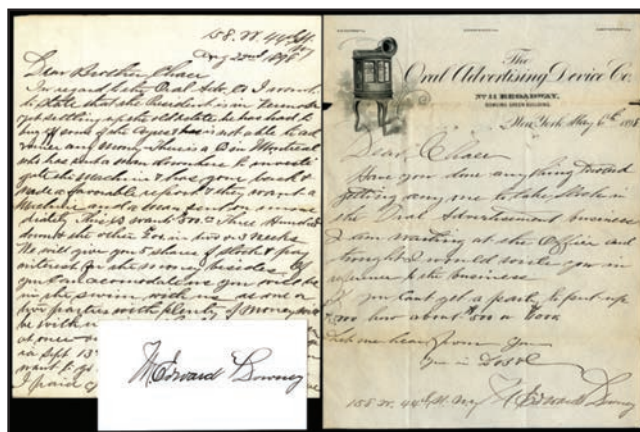 158. W. 44th St
Aug 22nd 1898
Dear Brother Chace
In regard to the Oral Adv. Co I want
to state that the President is in Vermont
settling up the old estate he has had to
buy of some of the & has is not able to ad
vance any money. There is a Co in Montreal
who has sent a man down here to investi
gate the Machine & has gone back &
made a favorable report & they want a
Machine and a man sent on imme
diately This Co want 500.00 Three Hundred
down & the other 200. in two or 3 weeks
We will give you 5 shares of stock & pay
interest for the money besides. If
you can accomodate us you will be
in the swim with us as one or
two parties with plenty of money
be with
at once
Sept 13
want to go
I paid
H. Edward Downey
The
Oral Advertising Device Co.
No 11 BROADWAY,
BOWLING GREEN BUILDING.
New York May 6th 1898
Dear Chace
Have you done anything toward
getting any one to take stock in
the Oral Advertisement business
I am waiting at the Office and
thought I would write you in
reference to the business
If you cant get a party to put up
how about $500 or
Let me hear from you
158 W. 44th St. N.Y. H Edward Downey